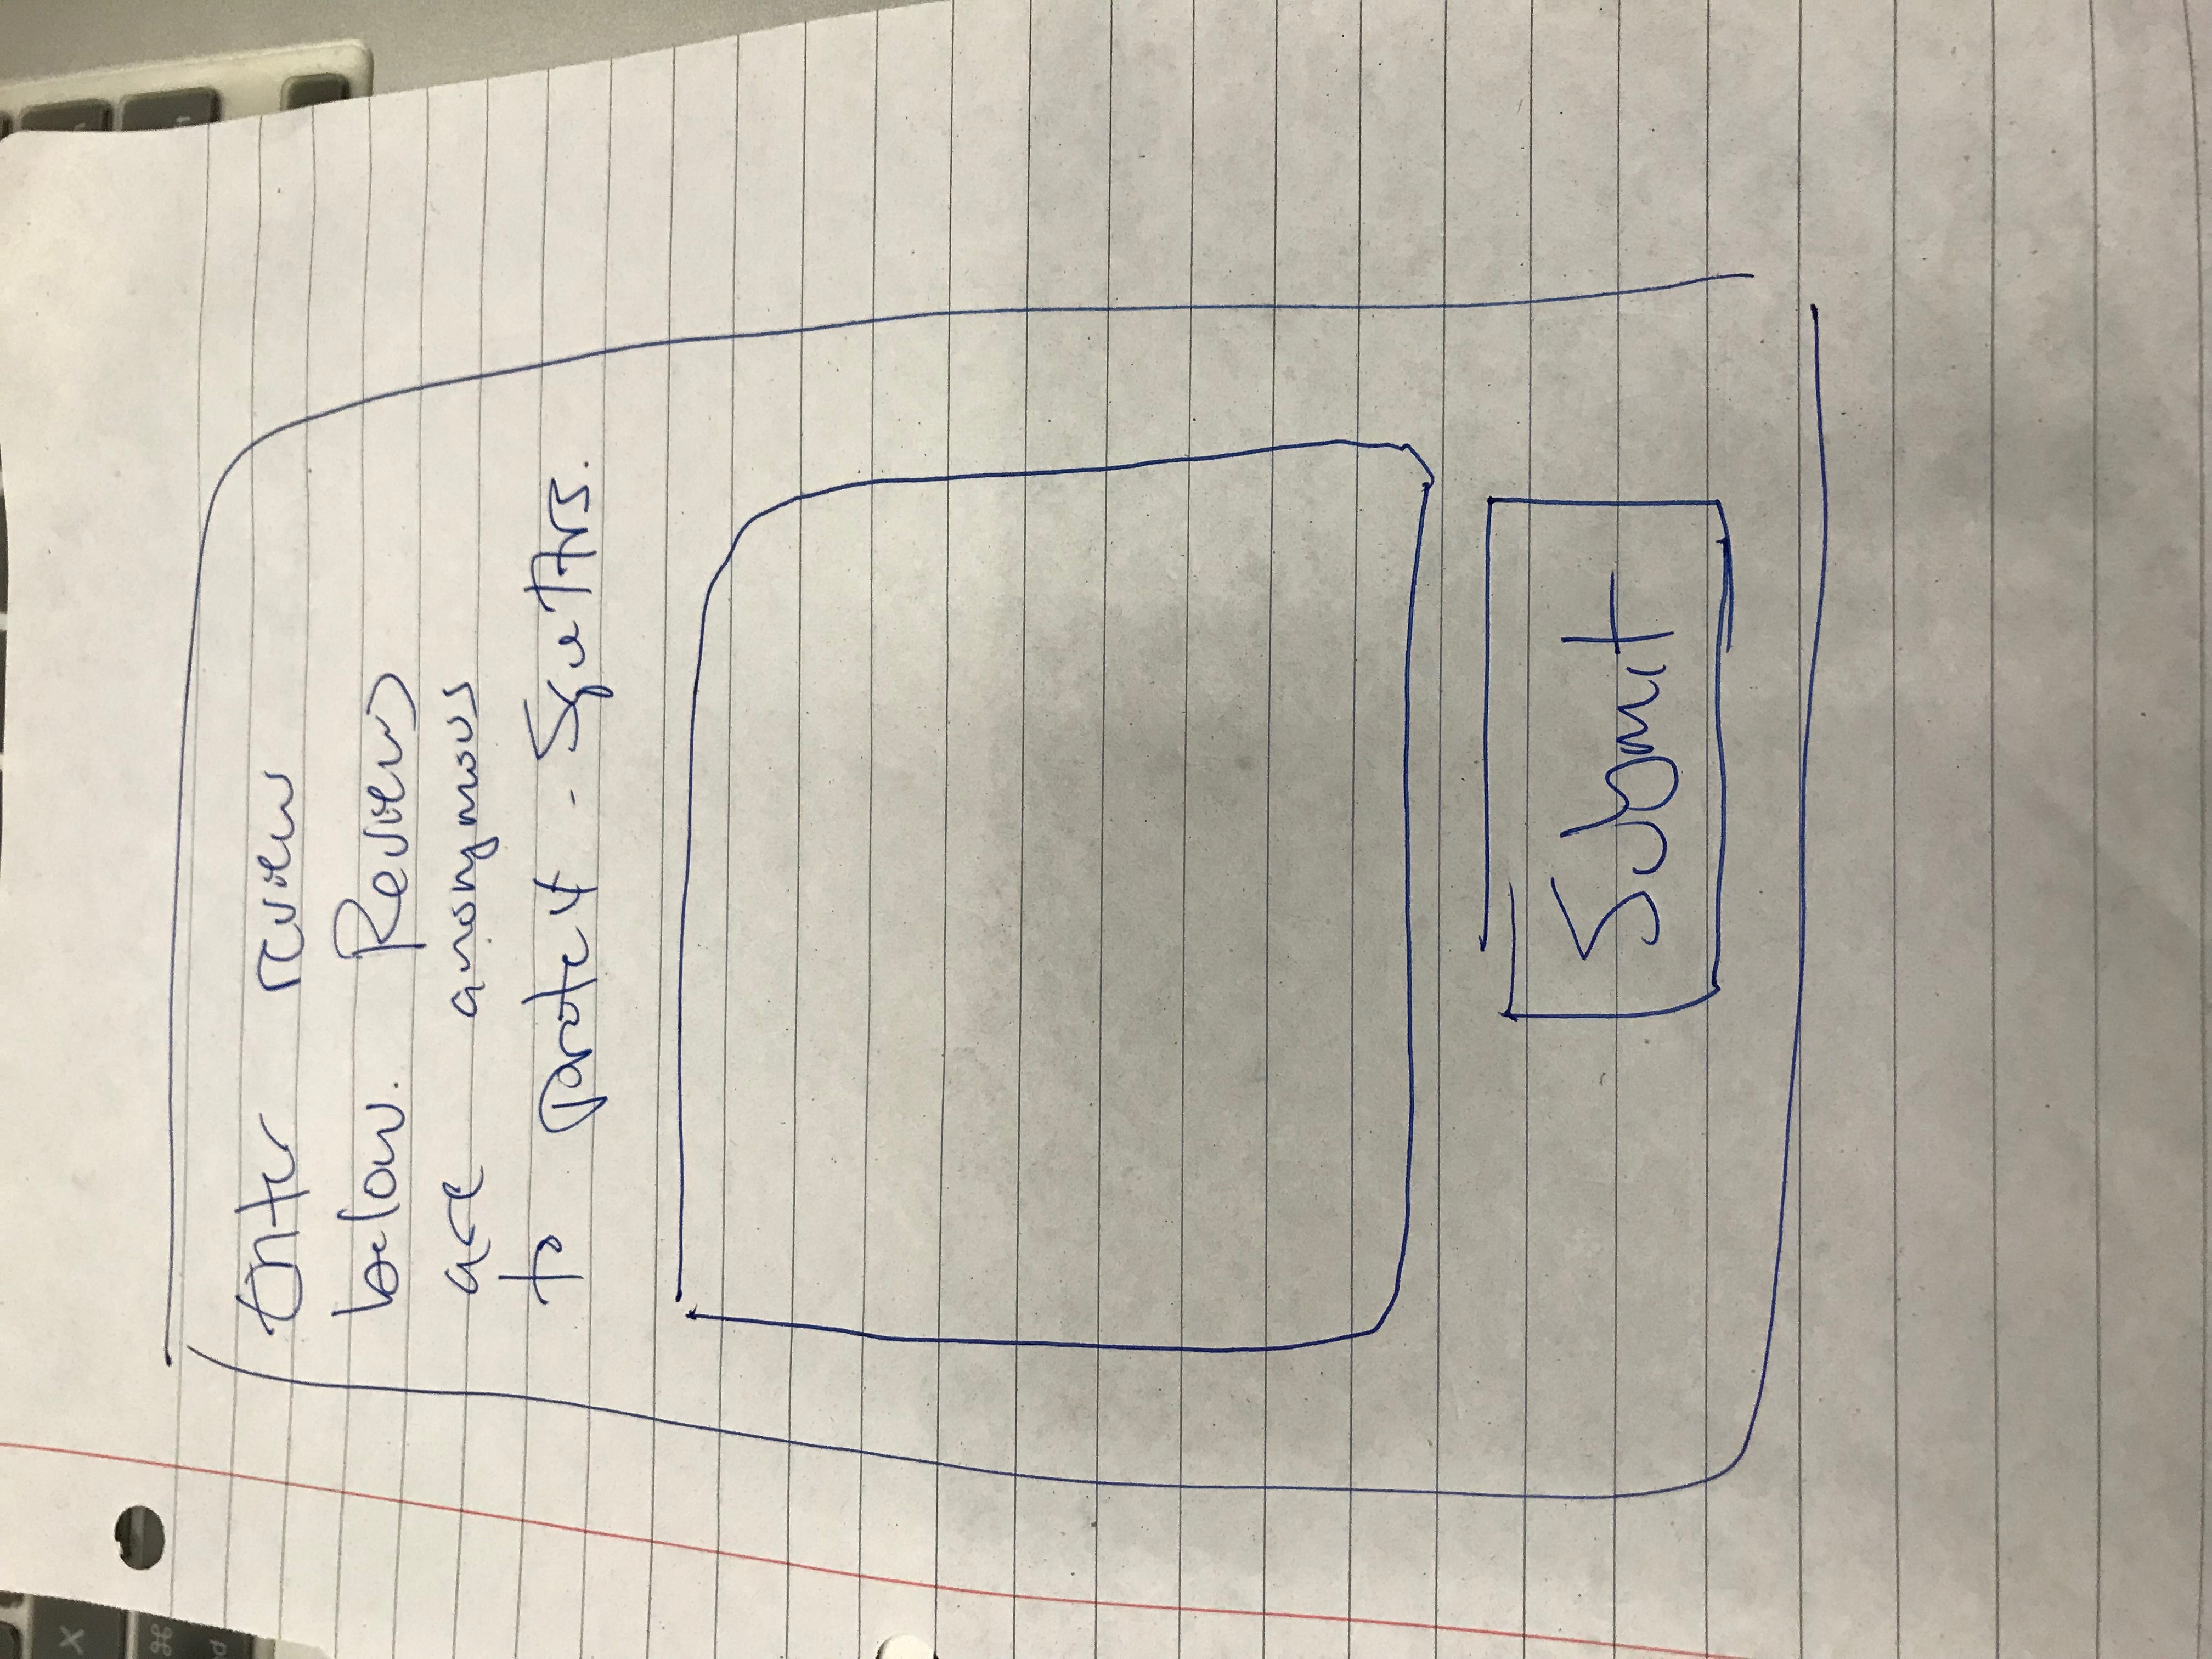 Enter review
below. Reviews
are anonymous
to protect
Submit